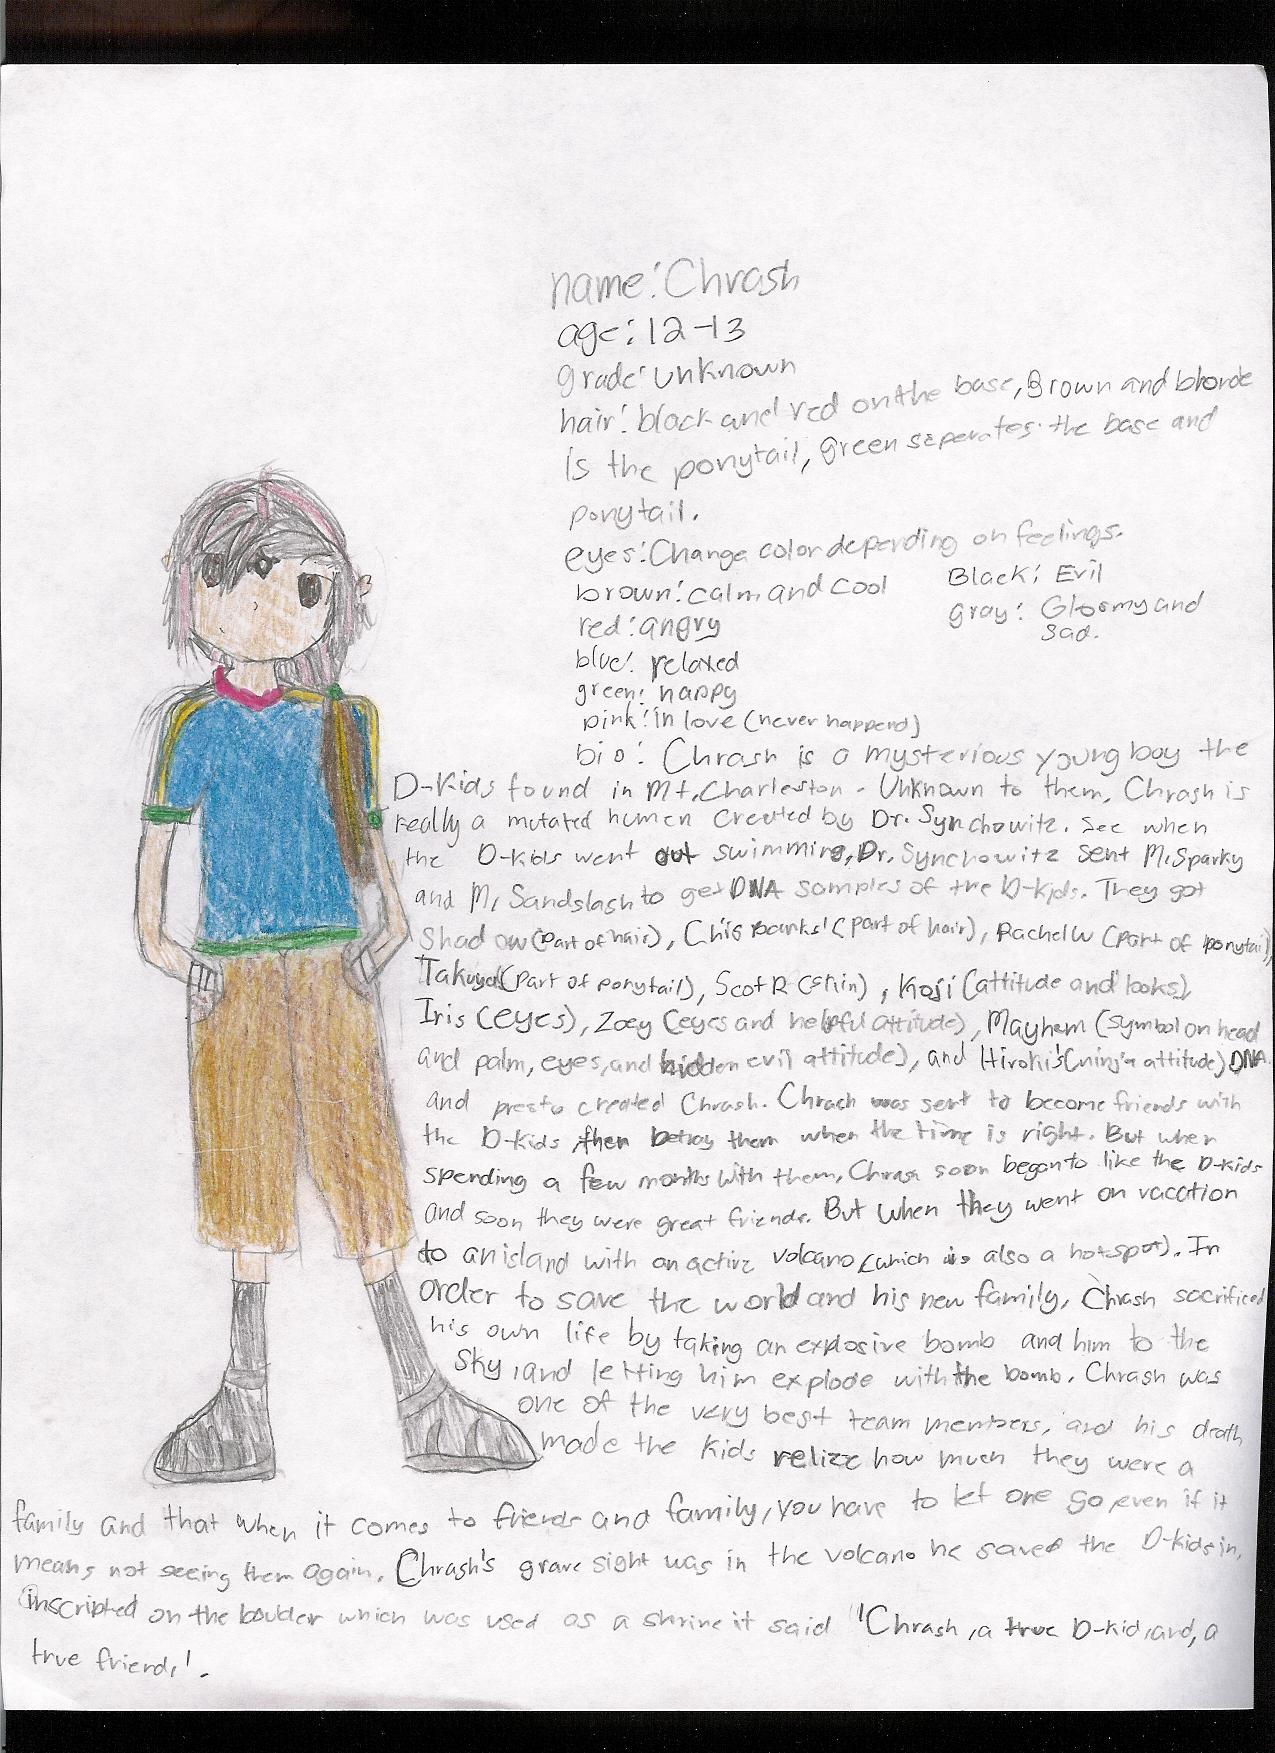 name: Chrash
age: 12-13
grade: unknown
hair: black and red on the base, Brown and blonde
is the ponytail, green seperates the base and
ponytail.
eyes: Change color depending on feelings.
brown: calm and cool
Black: Evil
red: angry
gray: Gloomy and
sad.
blue: relaxed
green: happy
pink: in love (never happend)
bio: Chrash is a mysterious young boy the
D-Kids found in Mt. Charleston. Unknown to them, Chrash is
really a mutated human created by Dr. Synchowitz. See when
the D-kids went out swimming, Dr. Synchowitz sent M. Sparky
and M. Sandslash to get DNA samples of the D-kids. They got
Shadow (part of hair), Chis Banks' (part of hair), Rachel W (part of ponytail),
Takuya (part of ponytail), Scot R (skin), Koji (attitude and looks),
Iris (eyes), Zoey (eyes and helpful attitude), Mayhem (symbol on head
and palm, eyes, and hidden evil attitude), and Hiroki's (ninja attitude) DNA
and presto created Chrash. Chrash was sent to become friends with
the D-kids, then betray them when the time is right. But when
spending a few months with them, Chrash soon began to like the D-kids
and soon they were great friends. But when they went on vacation
to an island with an active volcano (which is also a hotspot). In
order to save the world and his new family, Chrash sacrificed
his own life by taking an explosive bomb and him to the
sky, and letting him explode with the bomb. Chrash was
one of the very best team members, and his death
made the kids relize how much they were a
family and that when it comes to friends and family, you have to let one go, even if it
means not seeing them again. Chrash's grave sight was in the volcano he saved the D-kids in,
inscripted on the boulder which was used as a shrine it said "Chrash, a true D-kid, and, a
true friend,'.